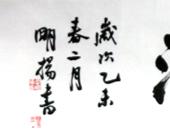 歲次乙未
春二月
明揚書